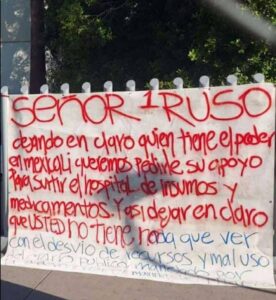 SEÑOR 1 RUSO
dejando en claro quien tiene el poder
en mexicali queremos pedirle su apoyo
para surtir el hospital de insumos y
medicamentos. Y asi dejar en claro
que USTED no tiene nada que ver
con el desvio de recursos y mal uso
publico por